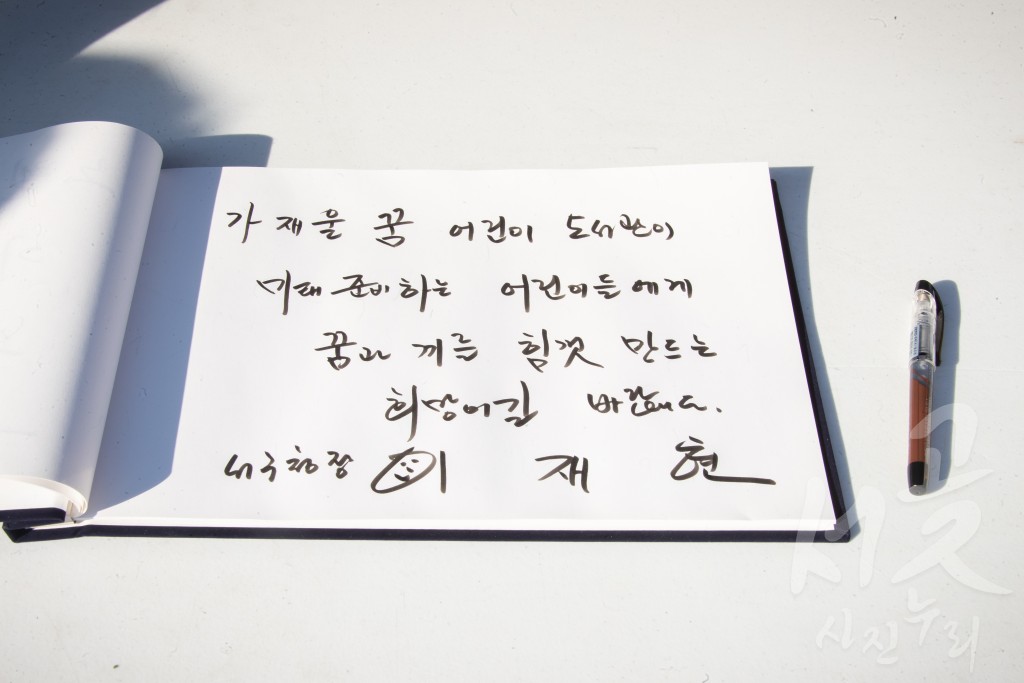 가재울 꿈 어린이 도서관이
미래 준비하는 어린이들에게
꿈과 끼를 힘껏 만드는
희망이길 바랍니다.
서구청장 이 재 현
서곳
사진누리